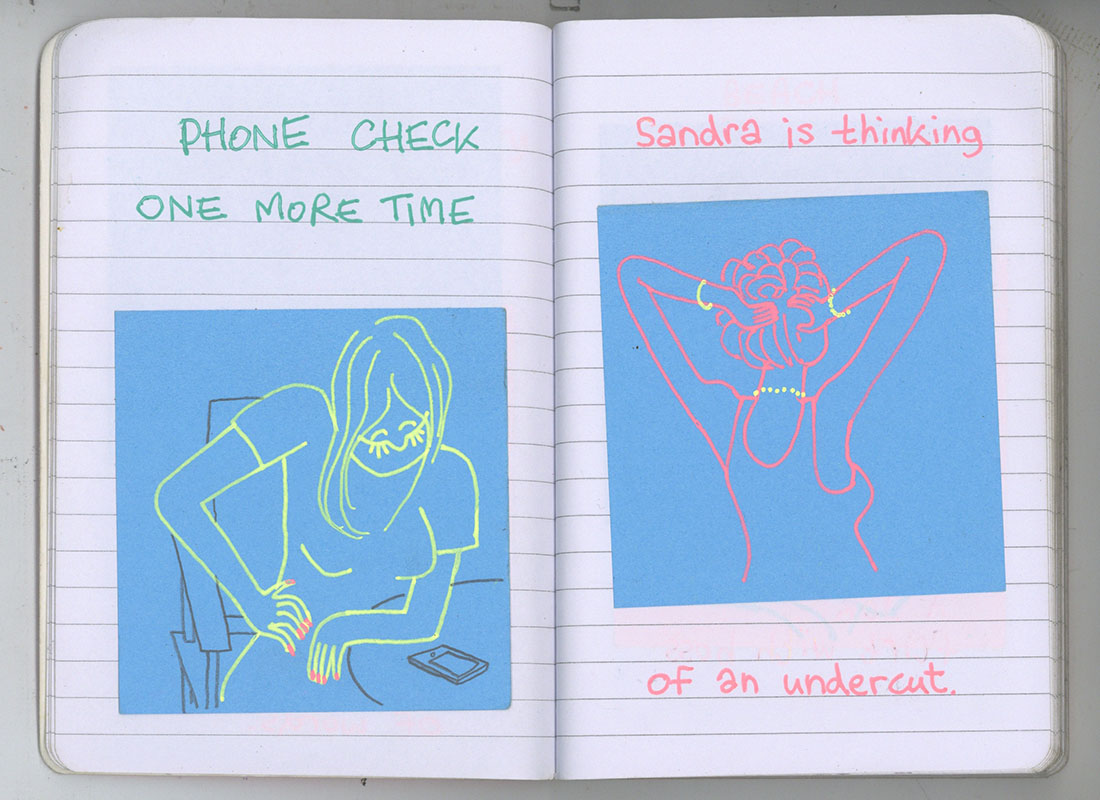 PHONE CHECK
ONE MORE TIME
Sandra is thinking
of an undercut.